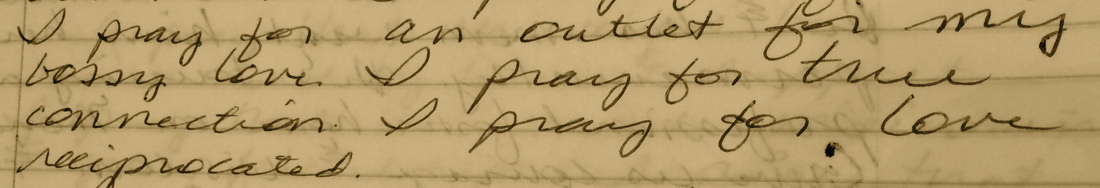 I pray for an outlet for my
bossy love. I pray for true
connection. I pray for love
reciprocated.